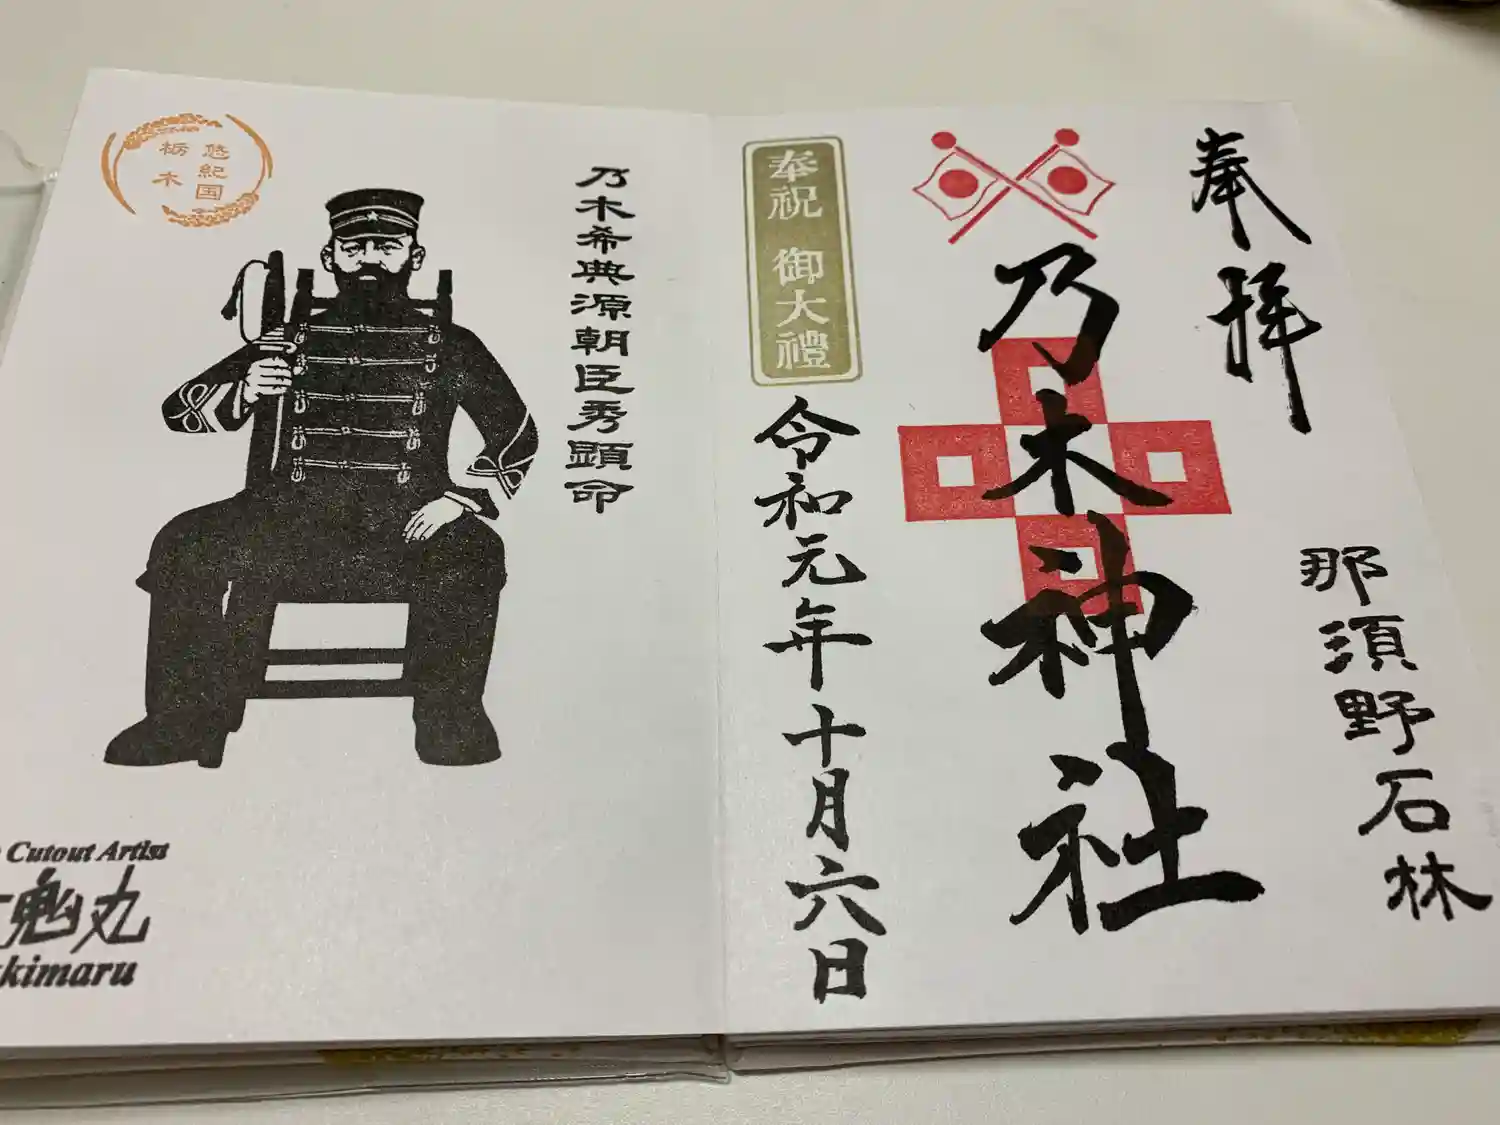 奉拝
那須野石林
乃木神社
奉祝 御大禮
令和元年十月六日
乃木希典源朝臣秀顕命
悠紀国
栃木
Cutout Artist
鬼丸
kimaru